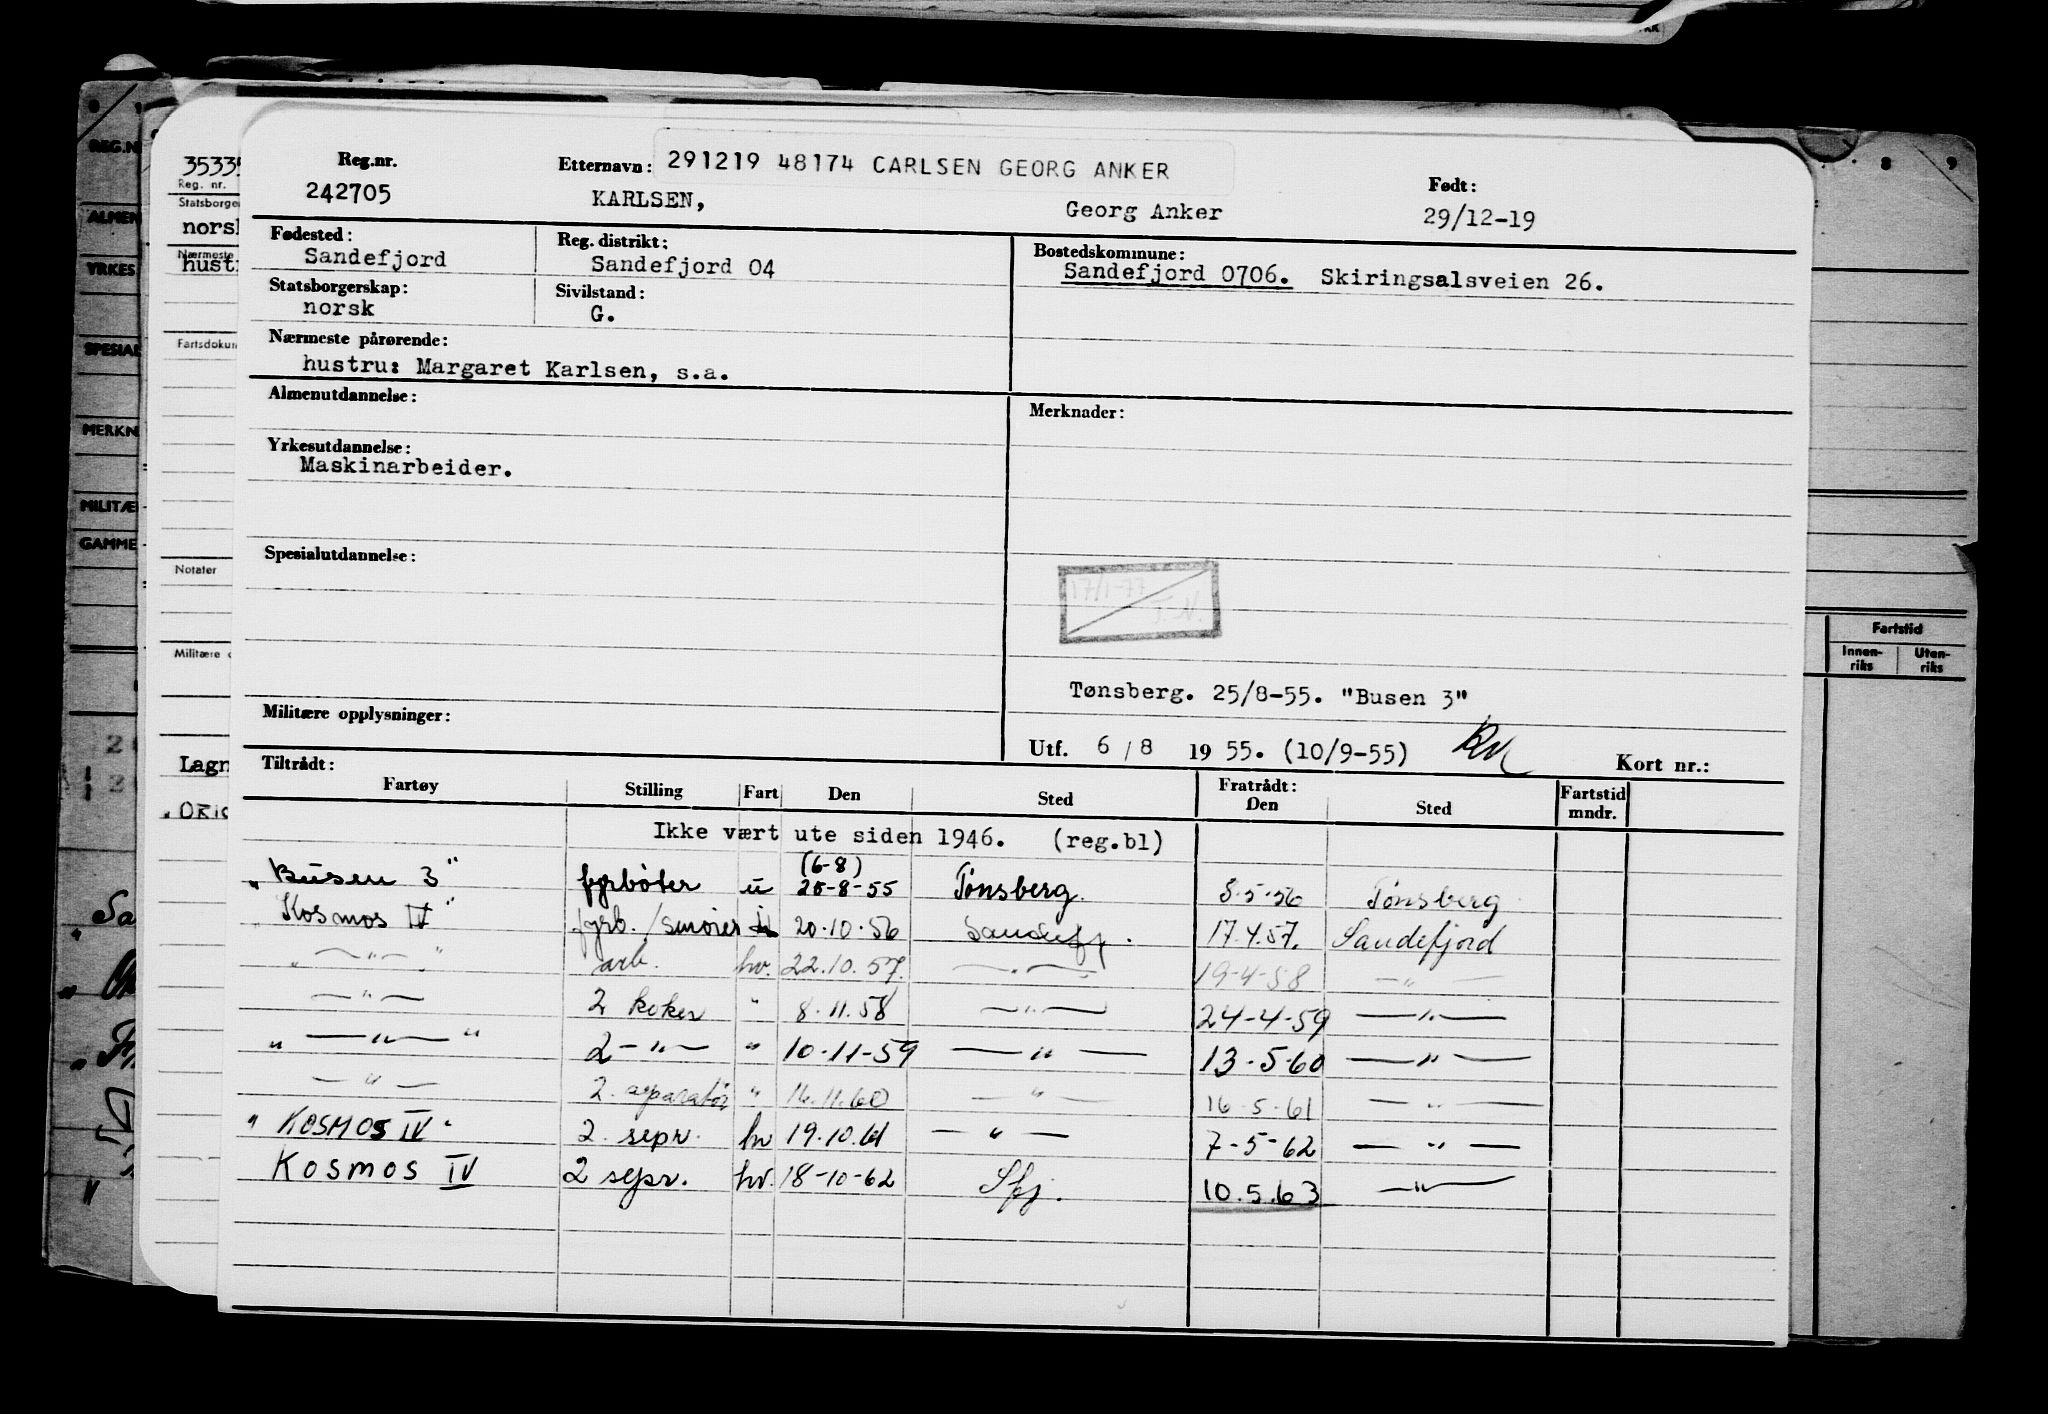 Reg.nr. Etternavn: 291219 48174 CARLSEN GEORG ANKER Født:
242705 KARLSEN, Georg Anker 29/12-19
Fødested: Reg. distrikt: Bostedskommune:
Sandefjord Sandefjord 04 Sandefjord 0706. Skiringsalsveien 26.
Statsborgerskap: Sivilstand:
norsk G.
Nærmeste pårørende:
hustru: Margaret Karlsen, s.a.
Almenutdannelse: Merknader:
Yrkesutdannelse:
Maskinarbeider.
Spesialutdannelse:
17/1-77
T.N.
Tønsberg. 25/8-55. "Busen 3"
Militære opplysninger:
Utf. 6/8 1955. (10/9-55) Kort nr.:
Tiltrådt: Fratrådt:
Fartøy Stilling Fart Den Sted Den Sted Fartstid mndr.
Ikke vært ute siden 1946. (reg.bl)
(6-8)
"Busen 3" fyrbøter u 25-8-55 Tønsberg. 8-5-56 Tønsberg
"Kosmos IV" fyrb./smører 20.10.56 Sandefj. 17.4.57. Sandefjord
" — " — " arb. hv. 22.10.57. — " — 19-4-58 — " —
— " — 2 koker " 8.11.58 — " — 24-4-59 — " —
" — " — " 2 — " — " 10-11-59 — " — 13-5-60 — " —
— " — 2. apparatør " 16.11.60 — " — 16-5-61 — " —
"KOSMOS IV" 2. sepr. hv 19.10.61 — " — 7-5-62 — " —
KOSMOS IV 2 sepr. hv. 18-10-62 Sfj. 10.5.63 — " —
3533
Reg. nr.
Statsborge
norsk
Nærmeste
hustr
Fartsdoku
Notater
Militære o
Lagn
REG.N
ALMEN
YRKES
SPESIAL
MERKN
MILITÆ
GAMME
8 9
Fartstid
Innen-riks Uten-riks